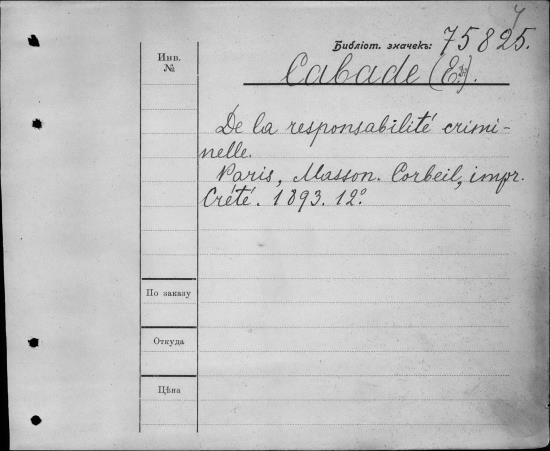 Библіот. значекъ: 75825.
Инв.
№
Cabade (E).
De la responsabilité crimi-
nelle.
Paris, Masson. Corbeil, impr.
Crété. 1893. 12º
По заказу
Откуда
Цѣна